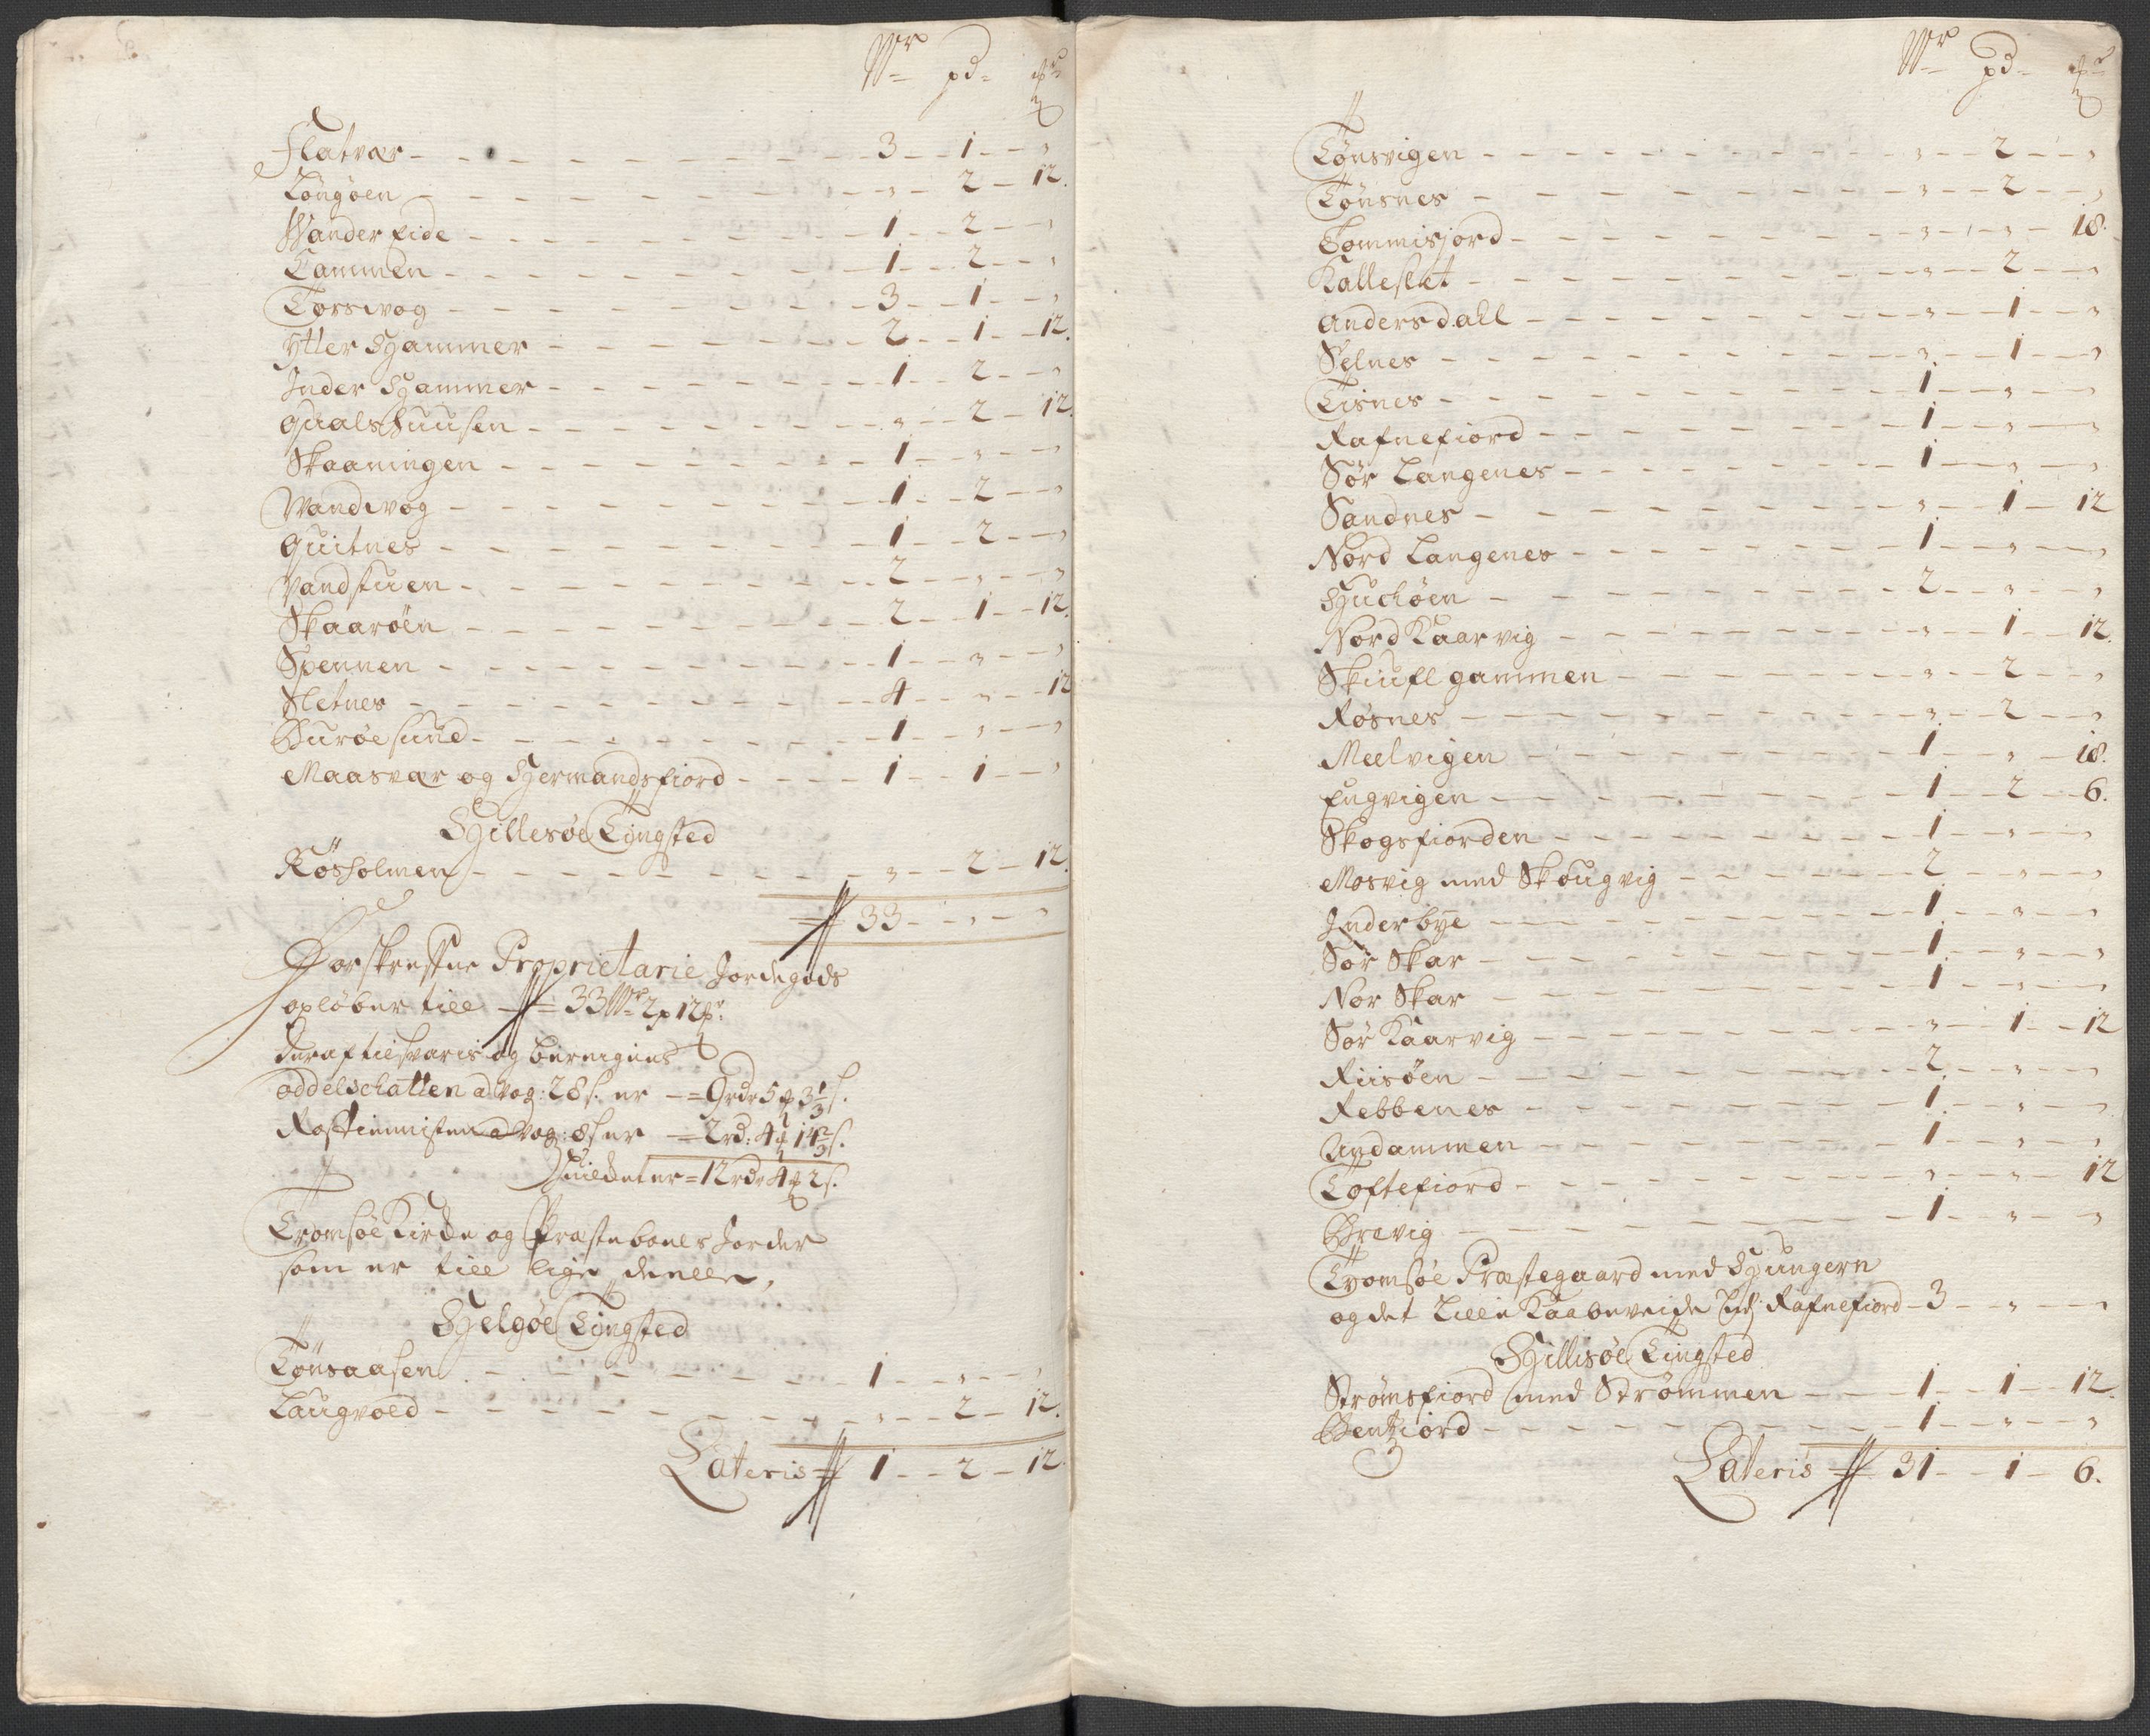 Wr pd
Flatvær 3 1 "
Longøen " 2 12.
Wander Eide 1 2 "
Cammen 1 2 "
Torswog 3 1 "
ytter Hammer 2 1 12.
Inder Hammer 1 2 "
Gaalshuusen " 2 12.
Skaaningen 1 " "
Wandwog 1 2 "
Quitnes 1 2 "
Vandstuen 2 " "
Skaarøen 2 1 12.
Spennen 1 " "
Sletnes 4 " 12
Burøesund 1 " "
Maasvær og Hermandsfiord 1 1 "
Hillesøe Tingsted
Røsholmen " 2 12.
33 " "
Forskrefne Proprietarie Jordegods
opløber till 33 Wr 2 p 12
deraf tilsvaris og beregnes
oddelschatten a vog: 28 s. er = 9 rdr 5 3 1/3 s.
Rostienisten a vog: 8 s er = 2 rd: 4 14 2/3 s.
huilchet er = 12 rdr 4 2 s.
Tromsøe Kircke og Præstebolls Jorder
som er till lige deelle,
Helgøe Tingsted
Tønsaasen 1 " "
Laugvold " 2 12.
Lateris 1 2 12.
Wr pd
Tønsvigen " 2 "
Tønsnes " 2 "
Tommisjord " " 18.
Kalleslet " 2 "
Andersdall " 1 "
Selnes " 1 "
Tisnes 1 " "
Rafnefiord 1 " "
Sør Langenes 1 " "
Sandnes " 1 12
Nord Langenes 1 " "
Huchøen 2 " "
Nord Kaarvig " 1 12.
Skiufl gammen " 2 "
Røsnes " 2 "
Meelvigen 1 " 18.
Engvigen 1 2 6.
Skogsfiorden 1 " "
Mosvig med Skougvig 2 " "
Inderbye 1 " "
Sør Skar 1 " "
Nor Skar 1 " "
Sør Kaarvig " 1 12
Riisøen 2 " "
Rebbenes 1 " "
Andammen 1 " "
Toftefiord " " 12
Brevig 1 " "
Tromsøe Præstegaard med Hungern
og det lille Kaabeweide Rafnefiord 3 " "
Hillisøe Tingsted
Strømsfiord med Strømmen 1 1 12.
Bentziord 1 " "
Lateris 31 1 6.